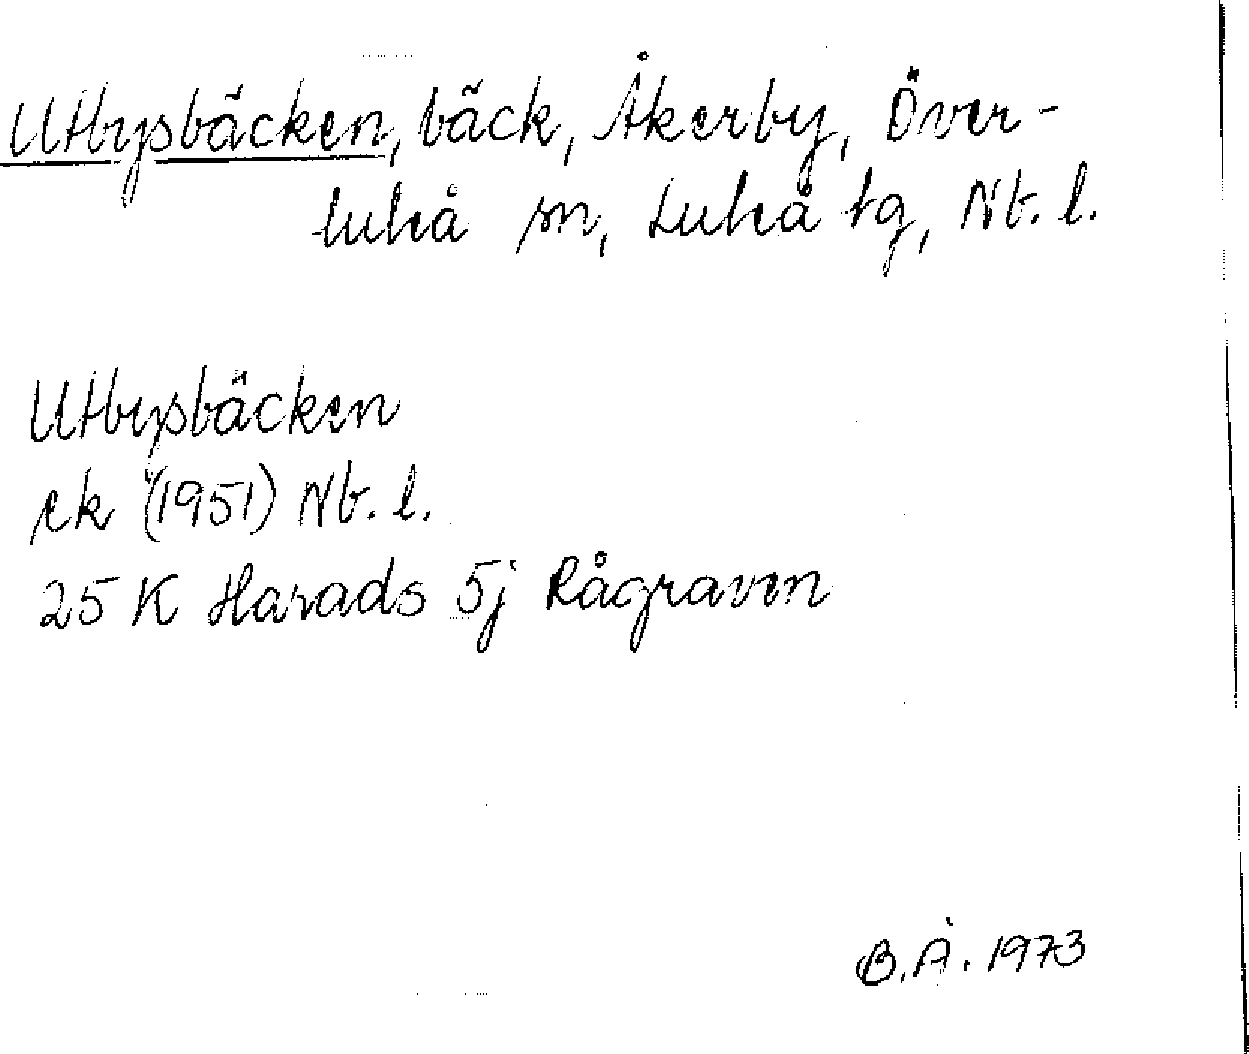 Utbysbäcken, bäck, Åkerby, Över-
luleå sn, Luleå tg, Nb. l.
Utbysbäcken
ek (1951) Nb. l.
25 K Harads 5j Rågraven
B.Å. 1973